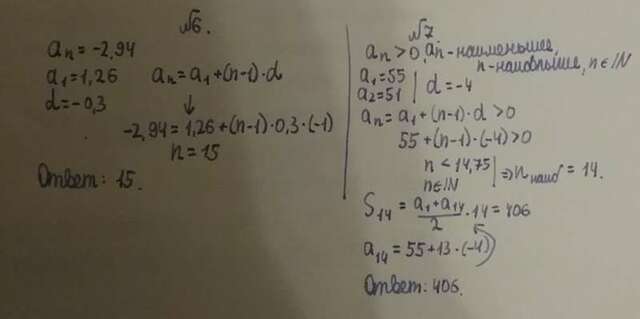 №6.
aₙ = -2,94
a₁ = 1,26 aₙ = a₁ + (n-1)·d
d = -0,3
↓
-2,94 = 1,26 + (n-1)·0,3·(-1)
n = 15
Ответ: 15.
№7
aₙ > 0, aₙ - наименьшее,
n - наибольшее, n ∈ ℕ
a₁ = 55
a₂ = 51 | d = -4
aₙ = a₁ + (n-1)·d > 0
55 + (n-1)·(-4) > 0
n < 14,75
n ∈ ℕ | ⇒ n наиб = 14.
S₁₄ = (a₁ + a₁₄)/2 · 14 = 406
a₁₄ = 55 + 13·(-4)
Ответ: 406.